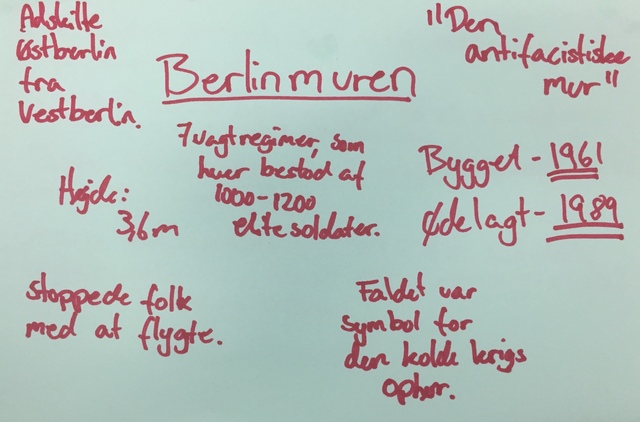 Berlinmuren
Adskilte
Østberlin
fra
Vestberlin.
"Den
antifacistiske
mur"
7 vagtregimer, som
hver bestod af
1000-1200
elite soldater.
Bygget - 1961
Ødelagt - 1989
Højde:
3,6 m
stoppede folk
med at flygte.
Faldet var
symbol for
den kolde krigs
ophør.